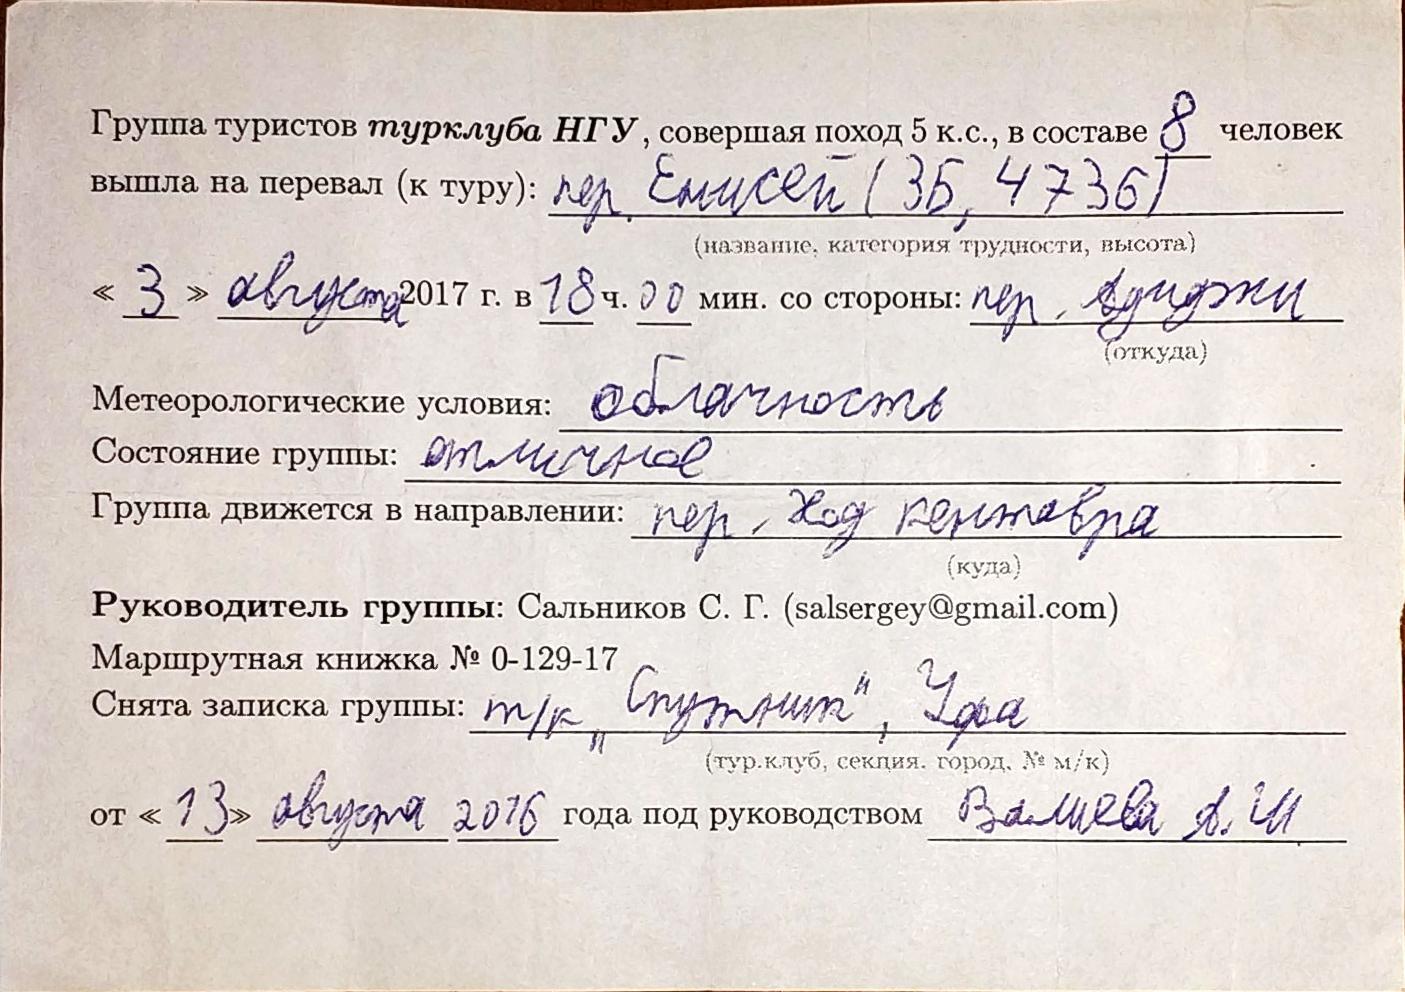 Группа туристов турклуба НГУ, совершая поход 5 к.с., в составе 8 человек
вышла на перевал (к туру): пер. Енисей (3Б, 4736)
(название, категория трудности, высота)
« 3 » августа 2017 г. в 18 ч. 00 мин. со стороны: пер. Адиджи
(откуда)
Метеорологические условия: облачность
Состояние группы: отличное
Группа движется в направлении: пер. Ход кентавра
(куда)
Руководитель группы: Сальников С. Г. (salsergey@gmail.com)
Маршрутная книжка № 0-129-17
Снята записка группы: т/к „Спутник", Уфа
(тур.клуб, секция, город, № м/к)
от « 13 » августа 2016 года под руководством Валиева А. И